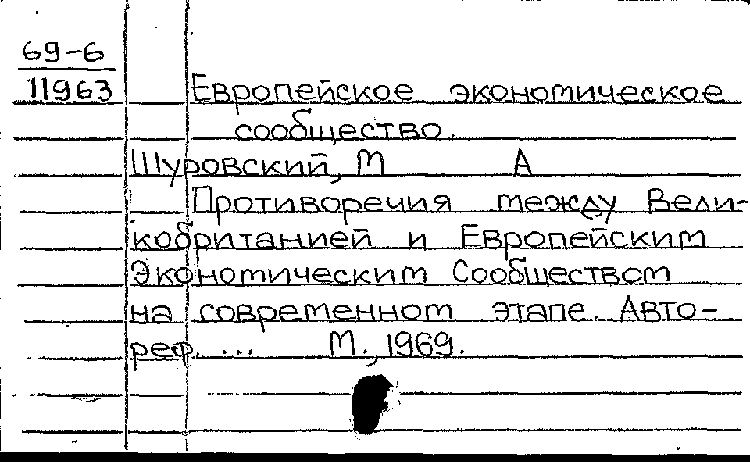 69-6
11963
Европейское экономическое
сообщество.
Шуровский, М А
Противоречия между Вели-
кобританией и Европейским
Экономическим Сообществом
на современном этапе. Авто-
реф. ... М., 1969.